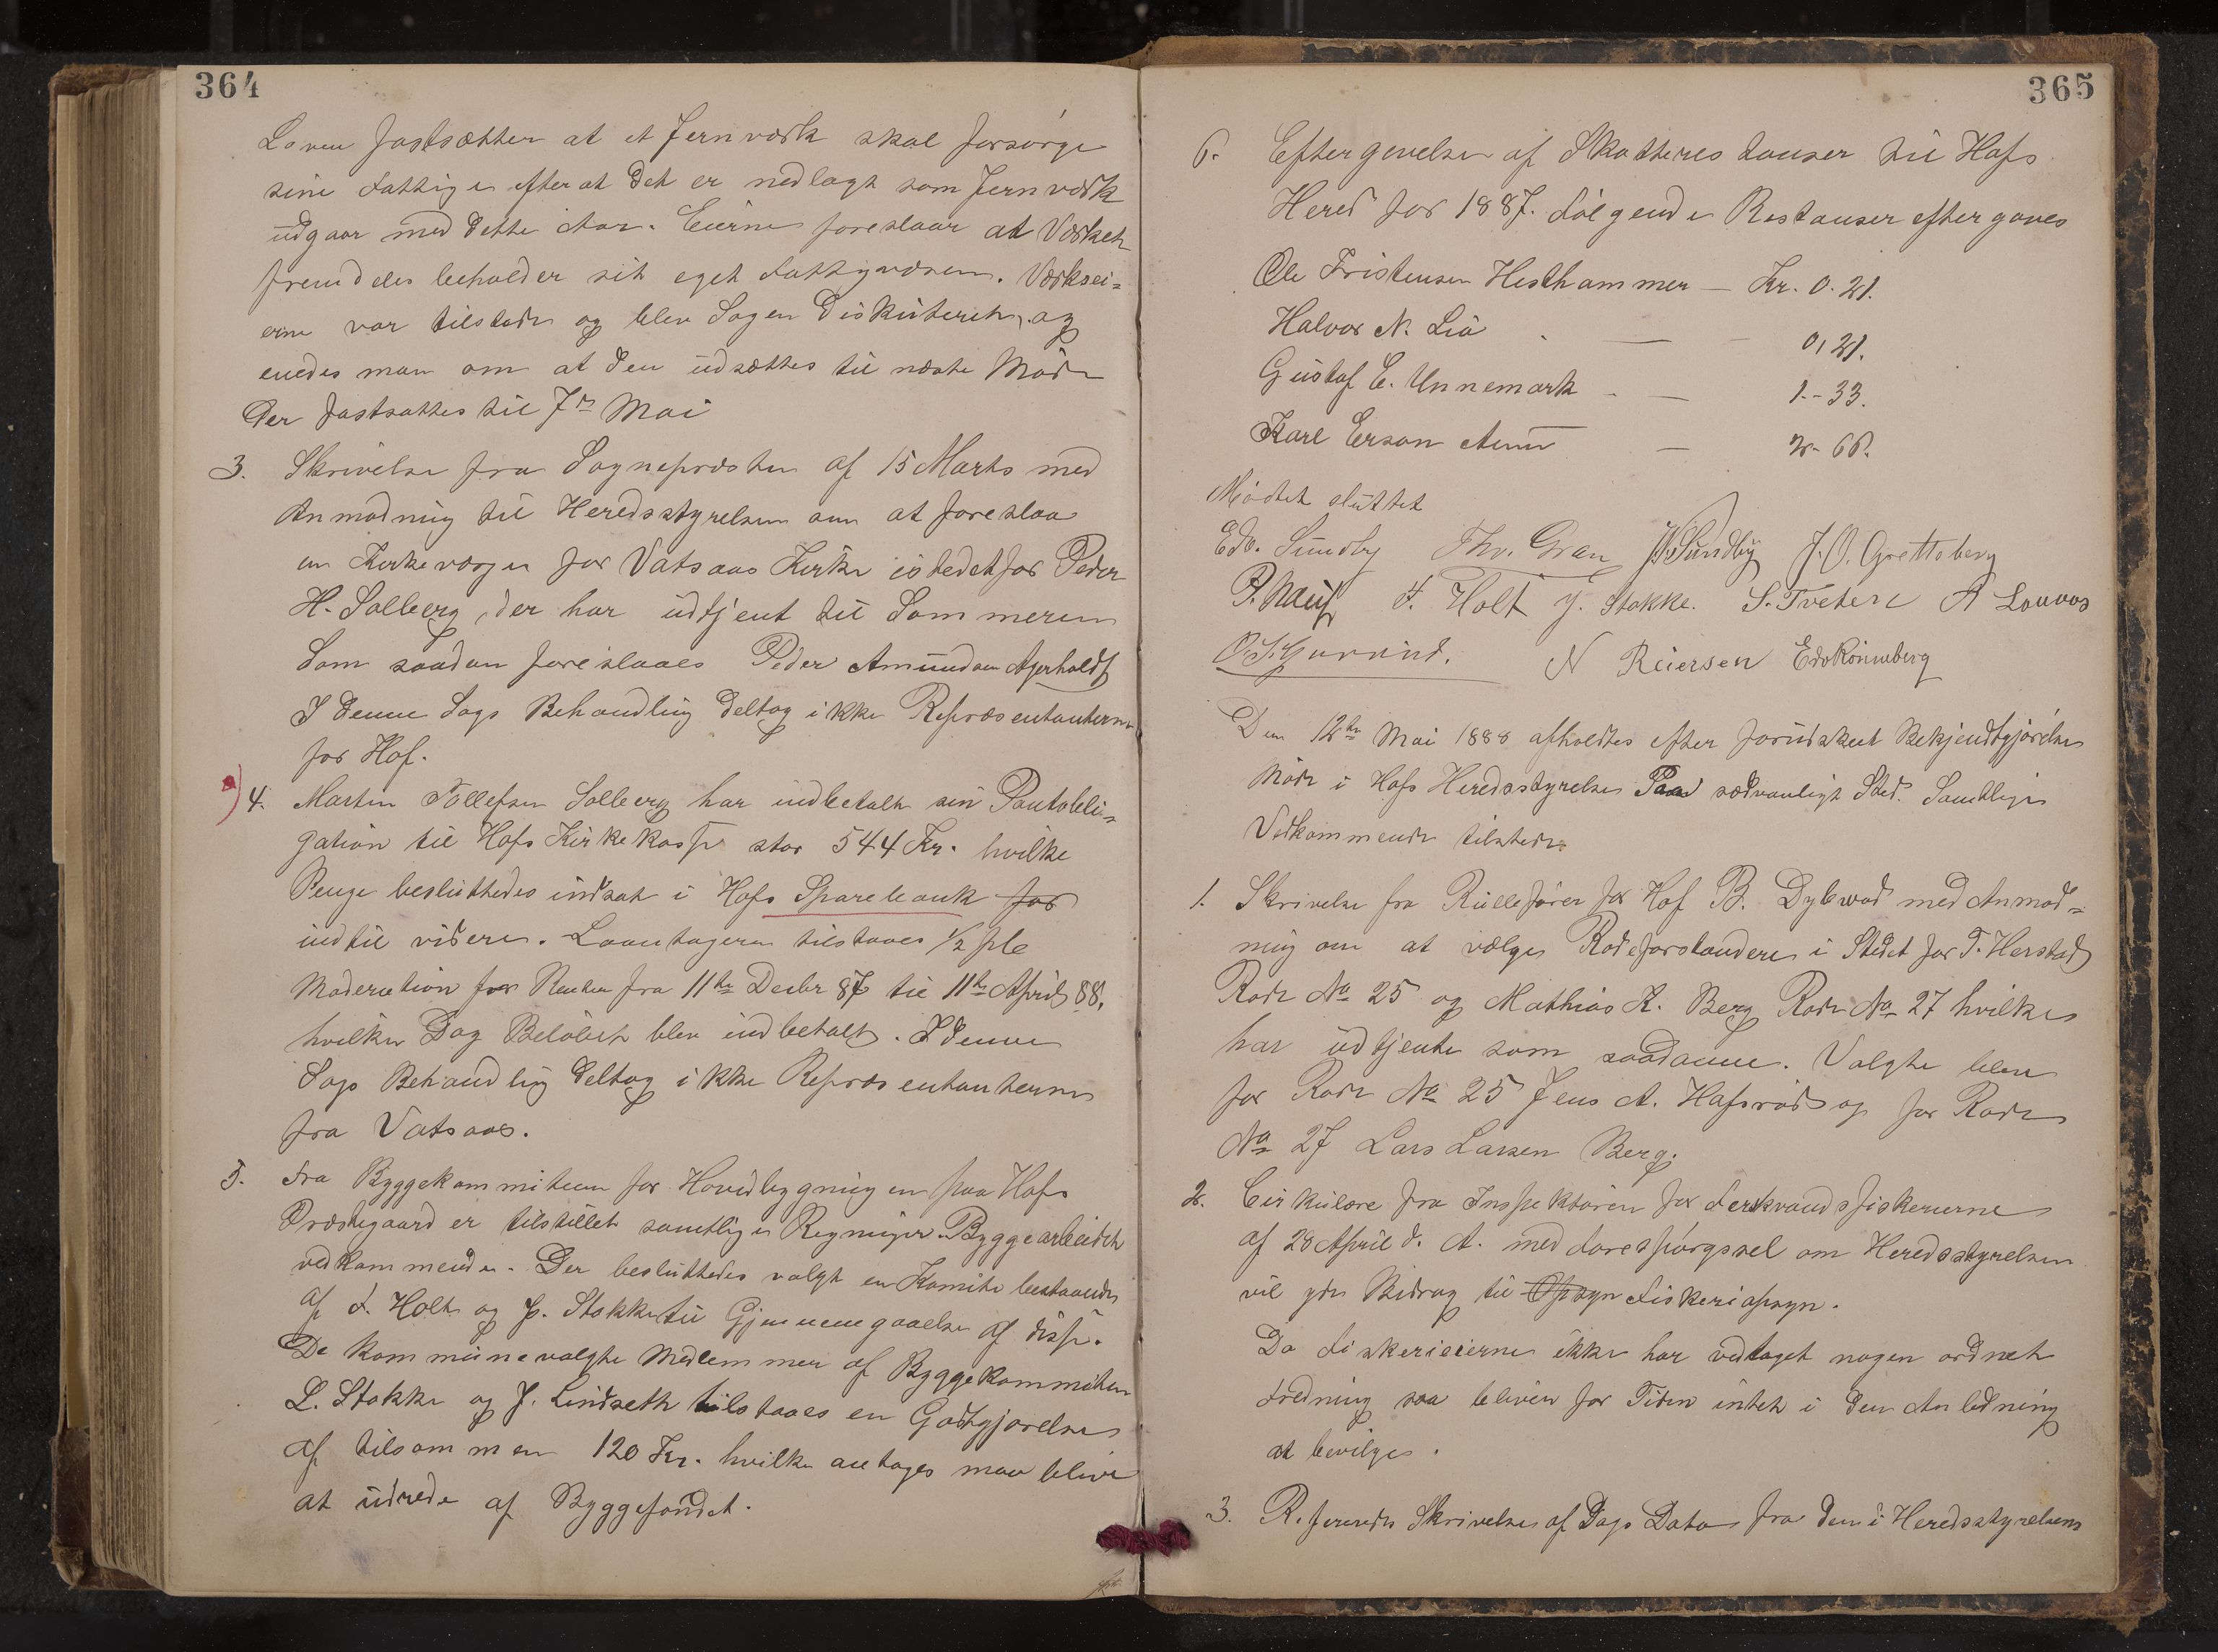 364
Loven fastsætter at et Jernværk skal forsørge
sine Fattige efter at det er nedlagt som Jernværk
udgaar med dette Aar. Eierne foreslaar at Værket
fremdeles beholder sit eget Fattigvæsen. Værksei=
erne var tilstede og blev Sagen diskuteret, og
enedes man om at den udsættes til næste Møde
der fastsattes til 7de Mai
3. Skrivelse fra Sognepresten af 15 Marts med
Anmodning til Heredsstyrelsen om at foreslaa
en Kirkeværge for Vatsaas Kirke istedetfor Peder
H. Solberg, der har udtjent til Sommeren
Som saadan foreslaaes Peder Amundsen Agerholdt
I denne Sags Behandling deltog ikke Repræsentanterne
for Hof.
4. Martin Tollefsen Solberg har indbetalt sin Pantobli=
gation til Hofs Kirkekasse stor 544 Kr. hvilke
Penge besluttedes indsat i Hofs Sparebank for
indtil videre. Laantageren tilstaaes 1/2 pCt
Moderation for Renten fra 11te Decbr 87 til 11te April 88,
hvilken Dag Beløbet blev indbetalt. I denne
Sags Behandling deltog ikke Repræsentanterne
fra Vatsaas.
5. Fra Byggekommiteen for Hovedbygningen paa Hofs
Præstegaard er tilstillet samtlige Regninger Byggearbeidet
vedkommende. Der besluttedes valgt en Komite bestaaende
af F. Holt og J. Stokke til Gjennemgaaelse af disse.
De kommunevalgte Medlemmer af Byggekommiteen
L. Stokke og J. Lindseth tilstaaes en Godtgjørelse
af tilsammen 120 Kr. hvilke antages maa blive
at udrede af Byggefondet.
365
6. Eftergivelse af Skatterestanser til Hofs
Hered for 1887. Følgende Restanser eftergaves
Ole Fristensen Hesthammer — Kr. 0.21.
Halvor N. Lia — 0,21.
Gustaf E. Unnemark — 1-33.
Karl Erson — 2-66.
Mødet sluttet
Edv. Sundby Thv. Gran Sundby J. O. Grettsberg
F. Holt J. Stokke. S. Tveten A Louvos
N Reiersen
Den 12te Mai 1888 afholdtes efter forudskeet Bekjendtgjørelse
Møde i Hofs Heredsstyrelse Paa sædvanligt Sted. Samtlige
Vedkommende tilstede.
1. Skrivelse fra Rullefører for Hof B. Dylewad med Anmod=
ning om at vælge Rodeforstandere i Stedet for T. Herstad
Rode No 25 og Mathias K. Berg Rode No 27 hvilke
har udtjente som saadanne. Valgte blev
for Rode No 25 Jens A. Hafsrød og for Rode
No 27 Lars Larsen Berg.
2. Cirkulære fra Inspektøren for Ferskvandsfiskerierne
af 28 April d. A. med Forespørgssel om Heredsstyrelsen
vil yde Bidrag til Opsyn Fiskeriopsyn.
Da Fiskerieierne ikke har vedtaget nogen ordnet
Fredning saa bliver for Tiden intet i den Anledning
at bevilge.
3. Refereredes Skrivelse af Dags Dato fra den i Heredsstyrelsens